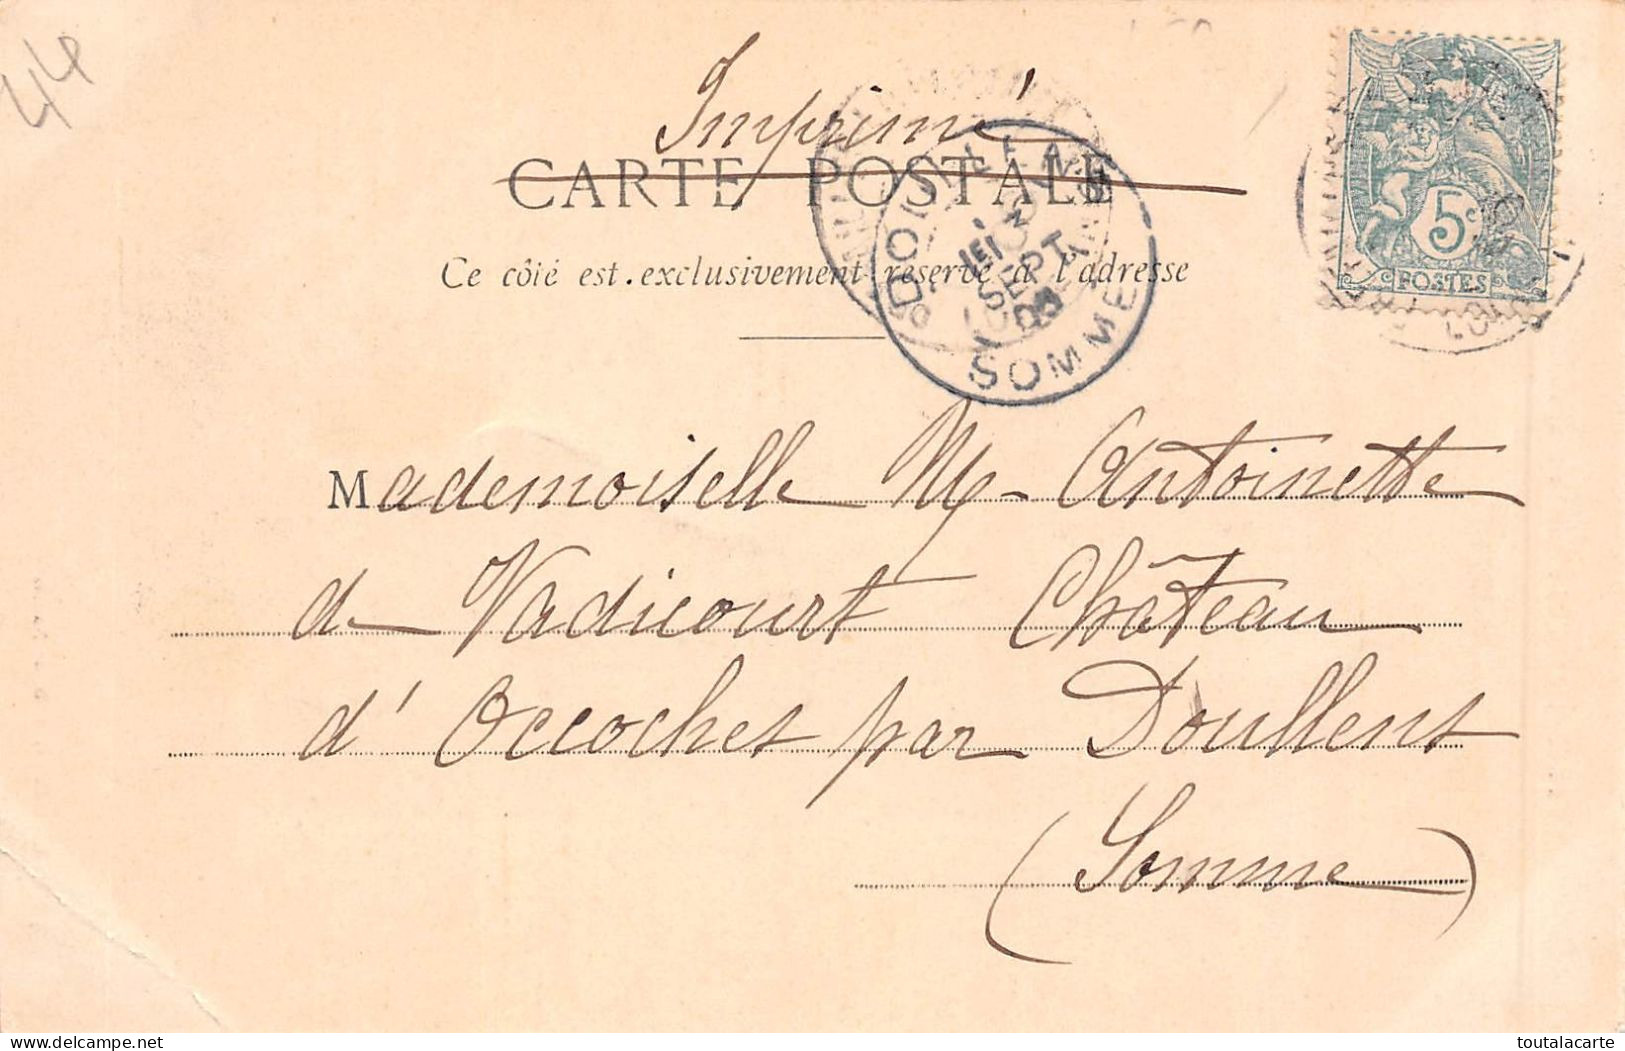 44
Imprimé
CARTE POSTALE
Ce côté est exclusivement réservé à l'adresse
DOULLENS
SEPT
03
SOMME
5c
POSTES
Mademoiselle M. Antoinette
de Vadicourt Château
d'Occoches par Doullens
(Somme)
www.delcampe.net
toutalacarte